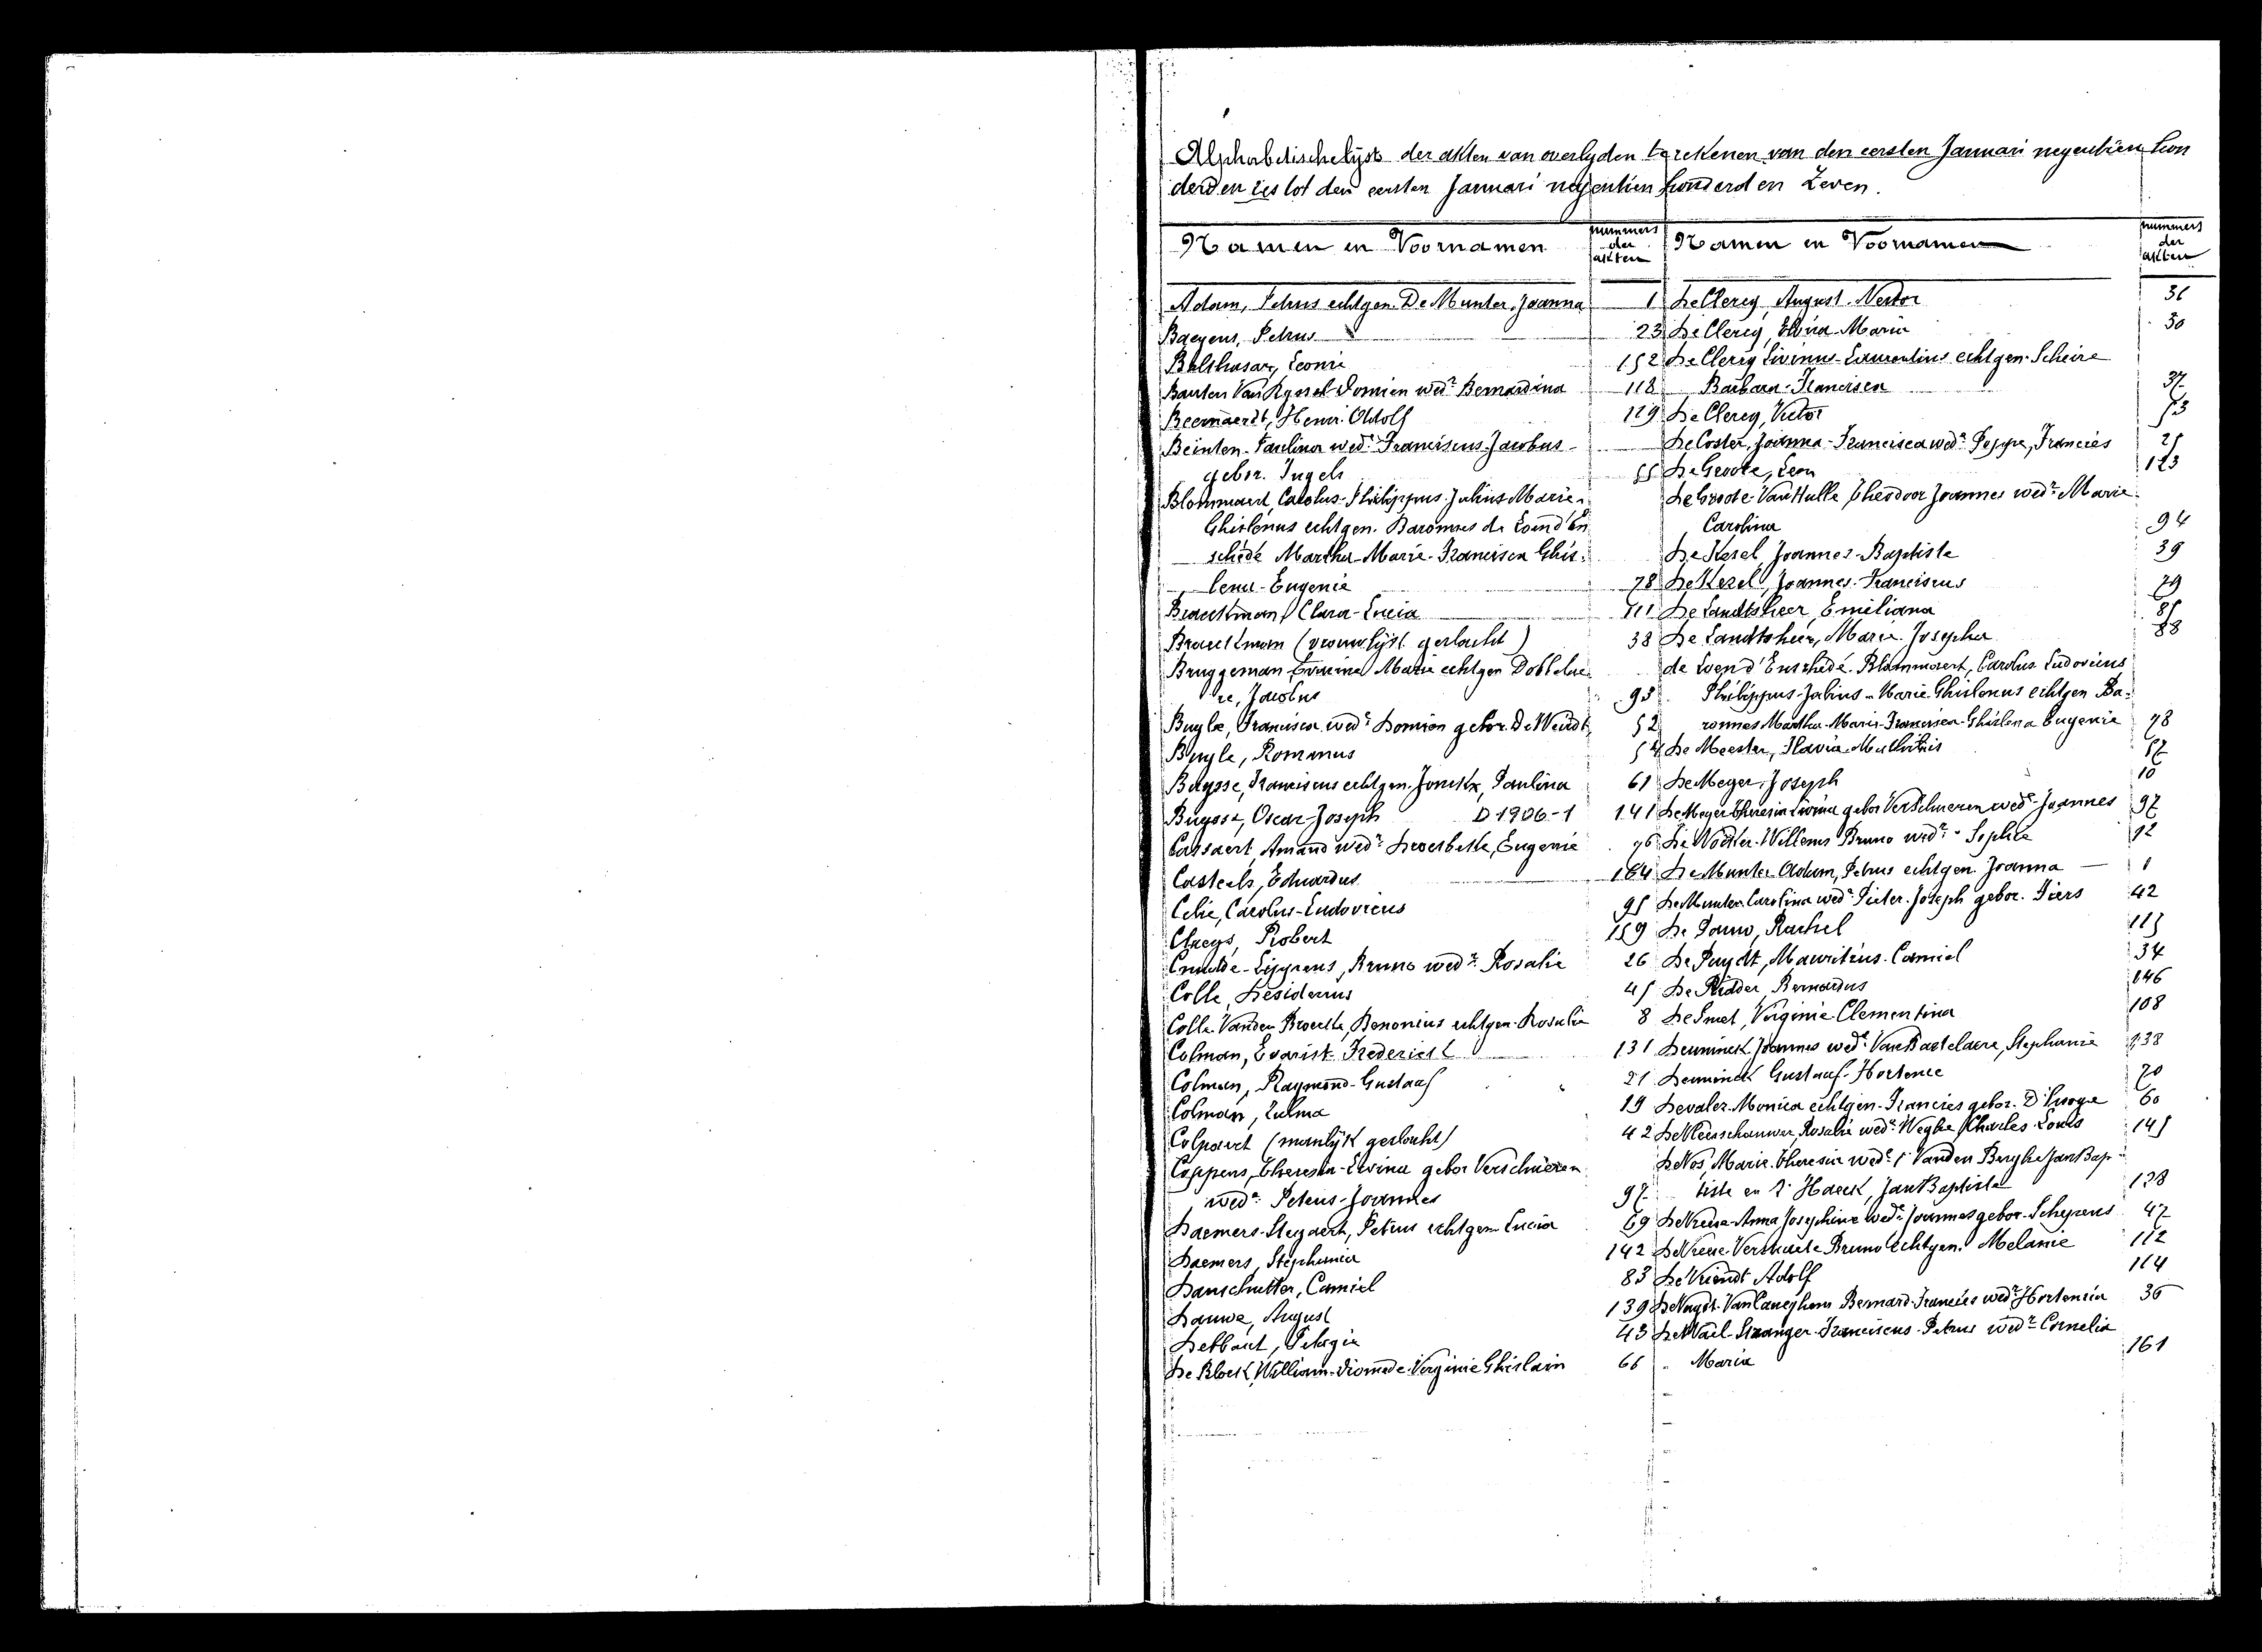 Alphabetischelijst der akten van overlyden te rekenen van den eersten Januari negentien hon
derd en zes tot den eersten Januari negentien honderd en Zeven.
Namen en Voornamen
nummers der akten
Namen en Voornamen
nummers der akten
Adam, Petrus echtgen De Munter Joanna 1
Baeyens, Petrus 23
Balthasar, Leonie 152
Bauters Van Ryssel Domien wedr Bernardina 118
Beernaerdt, Henri Adolf 129
Beinten Paulina wede Franciscus Jacobus
gebor. Ingels 55
Blommaert, Carolus-Philippus-Julius Marie-
Ghislenus echtgen. Baronnes de Loend'En
schedé Martha-Marie-Francisca Ghis-
lena-Eugenie 78
Braeckman, Clara-Lucia 111
Braeckman (vrouwlijk geslacht) 38
Bruggeman Marie echtgen Dobbelae
re, Jacobus 95
Buyle, Francisca wede Domien gebor. De Weirdt 52
Buyle, Romanus 54
Buysse, Franciscus echtgen. Jonckx, Paulina 61
Buysse, Oscar-Joseph D 1906-1 141
Cassaert, Amand wedr Eugenie 76
Casteels, Eduardus 164
Celie, Carolus-Ludovicus 95
Claeys, Robert 159
Lippens, Bruno wedr Rosalie 26
Colle, Desiderius 45
Colle Vanden Broecke, Benonius echtgen. Rosalie 8
Colman, Evarist-Frederick 131
Colman, Raymond-Gustaaf 21
Colman, Zulma 19
Colpaert (manlijk geslacht) 42
Coppens, Theresia-Livina gebor Verschueren
wede Petrus-Joannes 97
Daemers-Steyaert, Petrus echtgen Lucia 69
Daemers, Stephania 142
Danschutter, Camiel 83
Dauwe, August 139
Debbaut, Pelagie 43
De Block, William-Diomede-Verginie Ghislain 66
De Clercq, August Nestor 36
De Clercq, Elvira-Maria 30
De Clercq Livinus-Laurentius echtgen. Scheire
Barbara-Francisca 37
De Clercq, Victor 73
De Coster, Joanna-Francisca wede Peppe, Francies 25
De Groote, Leon 123
De Groote-Van Hulle Theodoor Joannes wedr Marie
Carolina 94
De Kesel, Joannes-Baptiste 39
De Kesel, Joannes-Franciscus 29
De Landtsheer Emiliana 85
De Landtsheer, Marie Josepha 88
de Loend'Enschedé-Blommaert, Carolus Ludovicus
Philippus-Julius-Marie Ghislenus echtgen Ba-
ronnes Martha-Marie-Francisca-Ghislena Eugenie 78
De Meester, Flavia-Mathildis 57
De Meyer, Joseph 10
De Meyer Theresia Livina gebor Verschueren wede Joannes 97
Willems Bruno wedr Sophie 92
De Munter Adam, Petrus echtgen. Joanna 1
De Munter Carolina wede Pieter-Joseph gebor. Piers 42
De Pauw, Rachel 115
De Puydt, Mauritius-Camiel 34
De Ridder, Bernardus 146
De Smet, Virginie Clementina 108
Deuninck Joannes wedr Van Bastelaere, Stephanie 138
Deuninck Gustaaf-Hortence 70
Devaler Monica echtgen-Francies gebor. D'Hooge 60
De Vleeschauwer, Rosalie wede Weghe, Charles Louis 145
De Vos, Marie Theresia wede 1e Vanden Berghe JanBap
tiste en 2e Haeck, JanBaptiste 128
De Vriese Anna Josephine wede Joannes gebor. Schepens 47
De Vriese Verstraete Bruno echtgen. Melanie 112
De Vriendt Adolf 114
De Vuyst-Van Caneghem Bernard-Francies wedr Hortensia 36
Franciscus Petrus wedr Cornelia
Maria 161